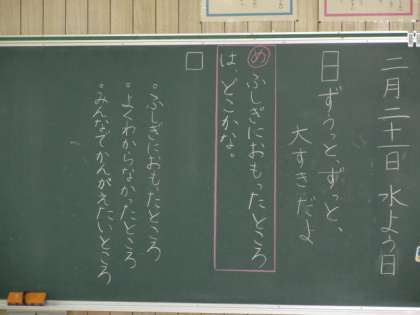 二月二十一日 水よう日
日 ずうっと、ずっと、
大すきだよ
め ふしぎにおもったところ
は、どこかな。
。ふしぎにおもたところ
。よくわからなかったところ
。みんなでかんがえたいところ